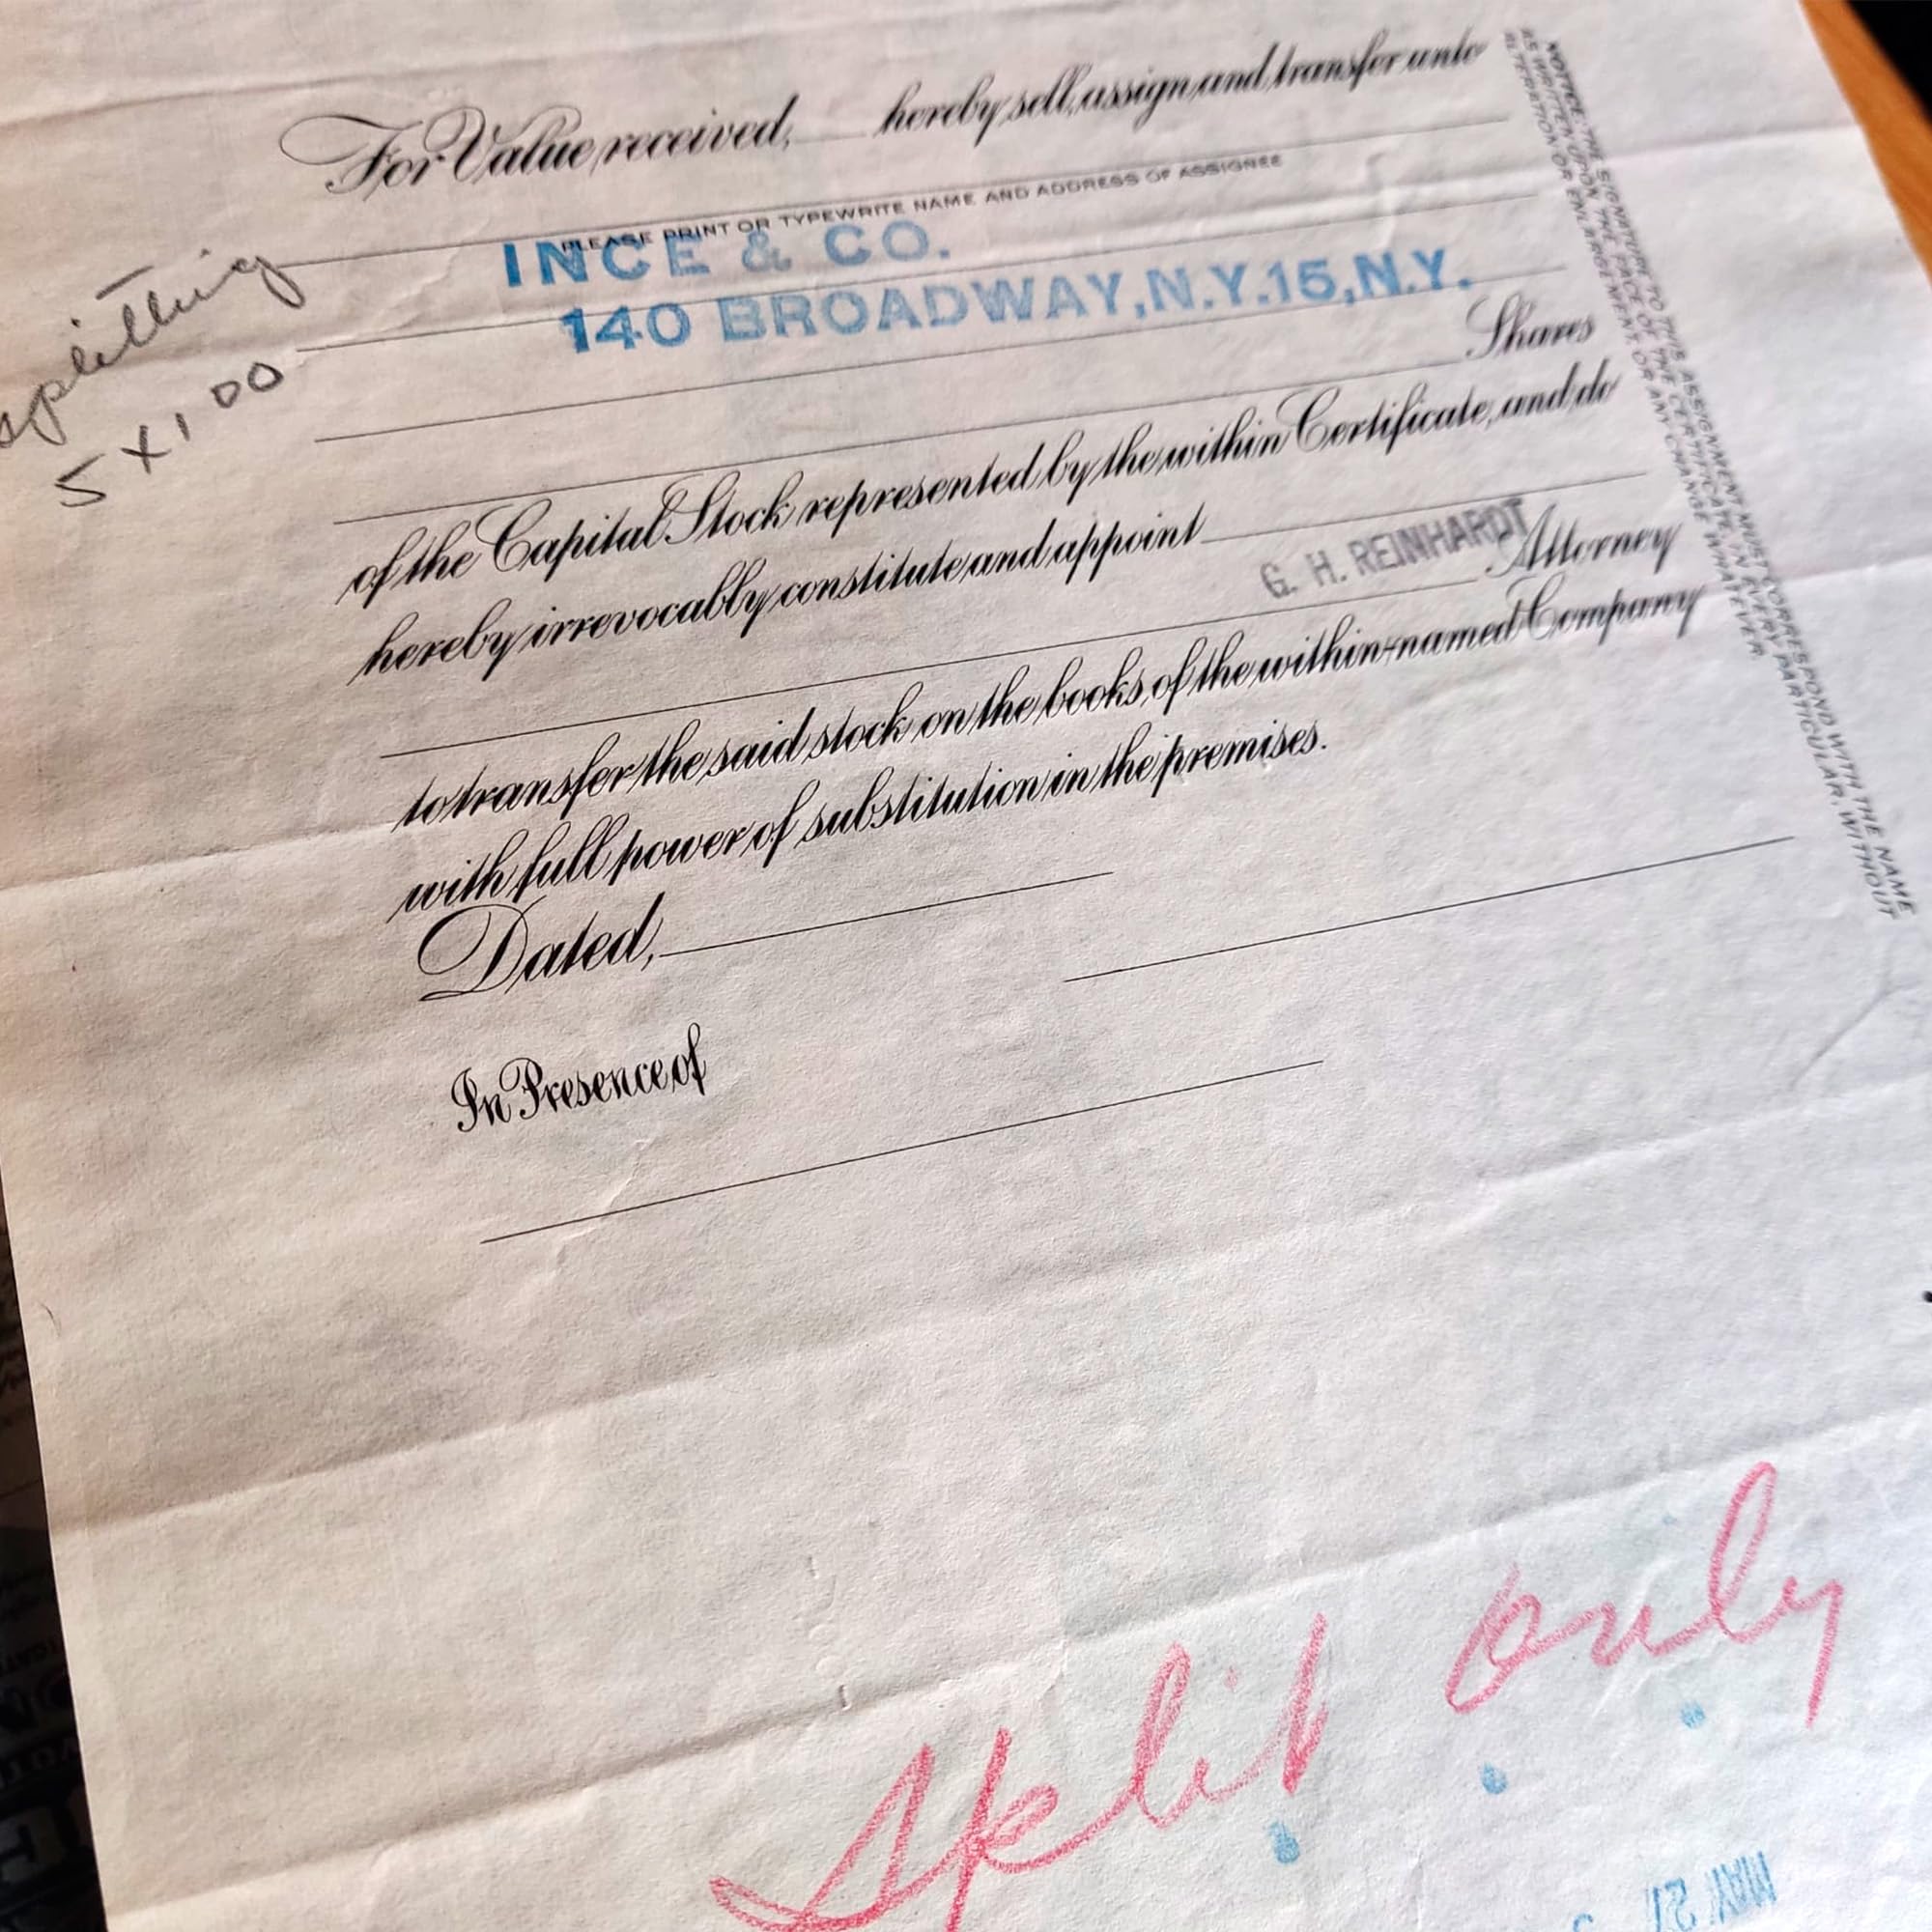 For Value received, hereby sell, assign and transfer unto
PLEASE PRINT OR TYPEWRITE NAME AND ADDRESS OF ASSIGNEE
INCE & CO.
140 BROADWAY, N.Y. 15, N.Y.
splitting
5 X 100
Shares
of the Capital Stock represented by the within Certificate, and do
hereby irrevocably constitute and appoint
G. H. REINHARDT
Attorney
to transfer the said stock on the books of the within-named Company
with full power of substitution in the premises.
Dated,
In Presence of
NOTICE: THE SIGNATURE TO THIS ASSIGNMENT MUST CORRESPOND WITH THE NAME
AS WRITTEN UPON THE FACE OF THE CERTIFICATE, IN EVERY PARTICULAR, WITHOUT
ALTERATION OR ENLARGEMENT, OR ANY CHANGE WHATEVER.
split only
MAY 27